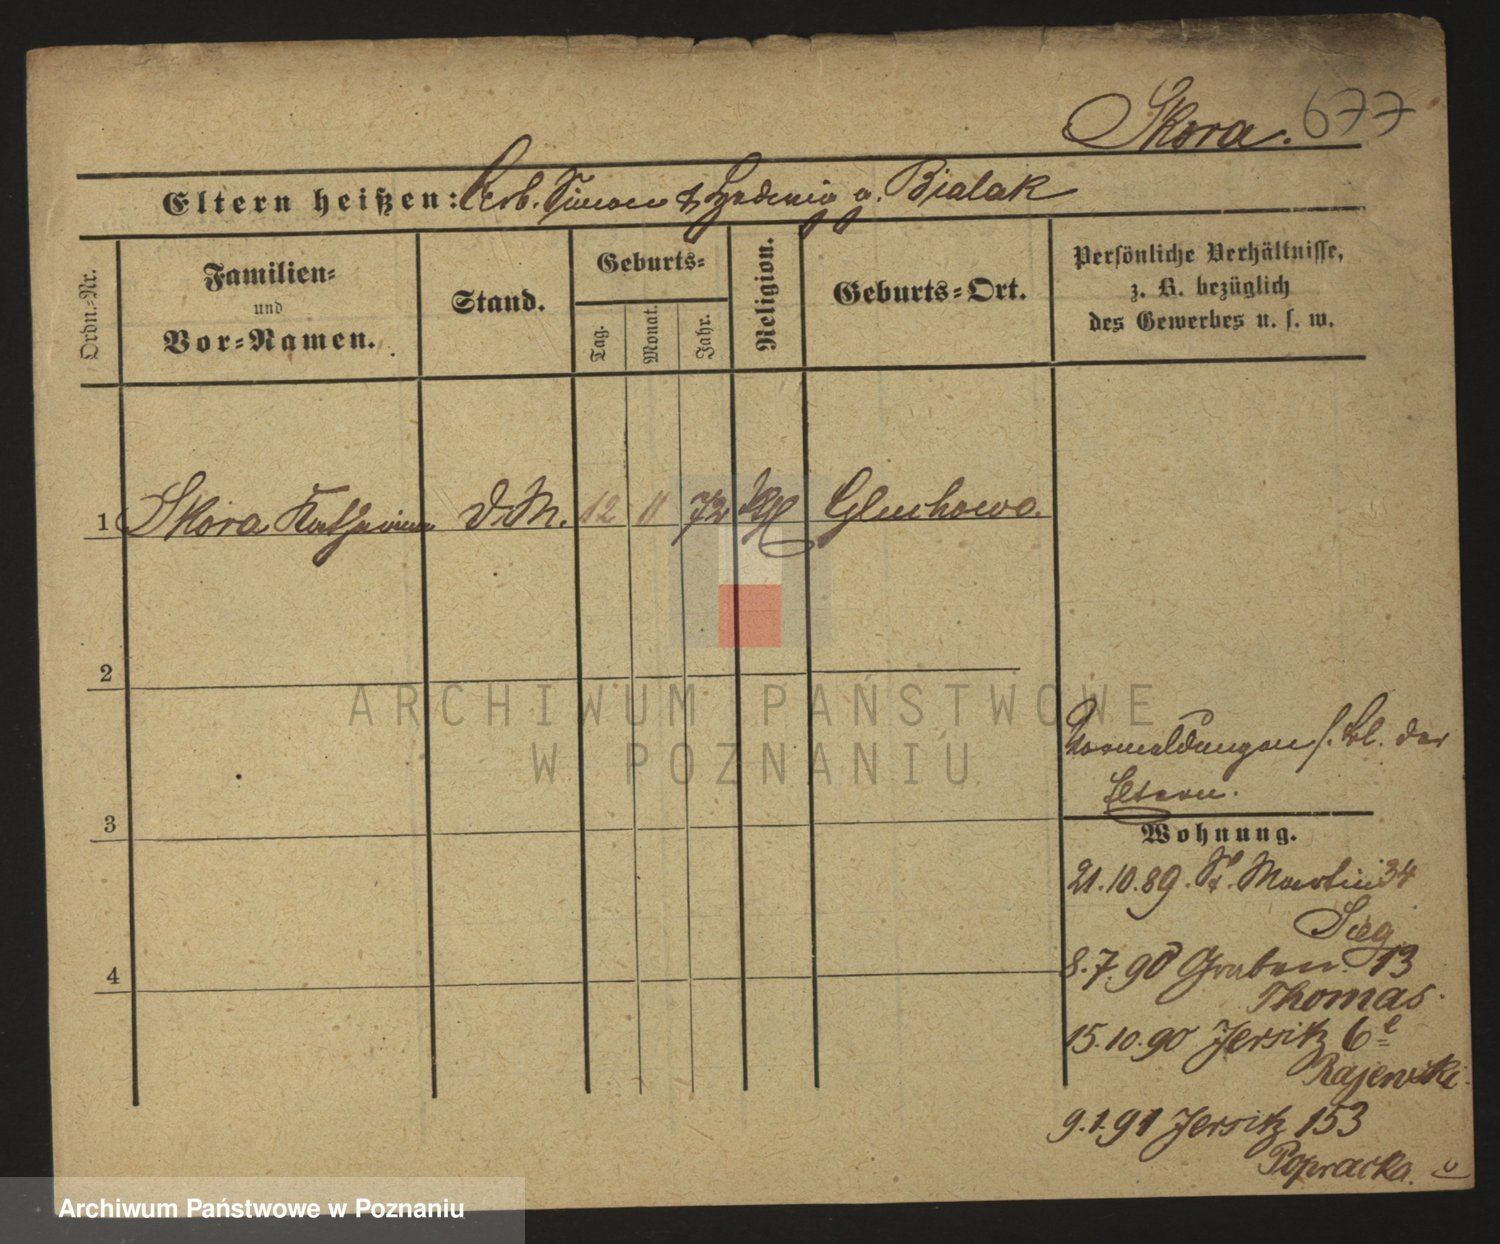 Skora. 677
Eltern heißen: Arb. Simon & Hedwig g. Bialak
Ordn.-Nr.
Familien-
und
Vor-Namen.
Stand.
Geburts-
Tag.
Monat.
Jahr.
Religion.
Geburts-Ort.
Persönliche Verhältnisse,
z. B. bezüglich
des Gewerbes u. s. w.
1 Skora Katharina D.M. 12 11 72 Gluchowo.
2
3
4
Vormeldungen s. Bl. der
Eltern.
Wohnung.
21.10.89. St. Martin 34
8.7.90 Graben 13
Thomas.
15.10.90 Jersitz 6e
Rajewski
9.1.91 Jersitz 153
Popracka.
ARCHIWUM PAŃSTWOWE
W POZNANIU
Archiwum Państwowe w Poznaniu